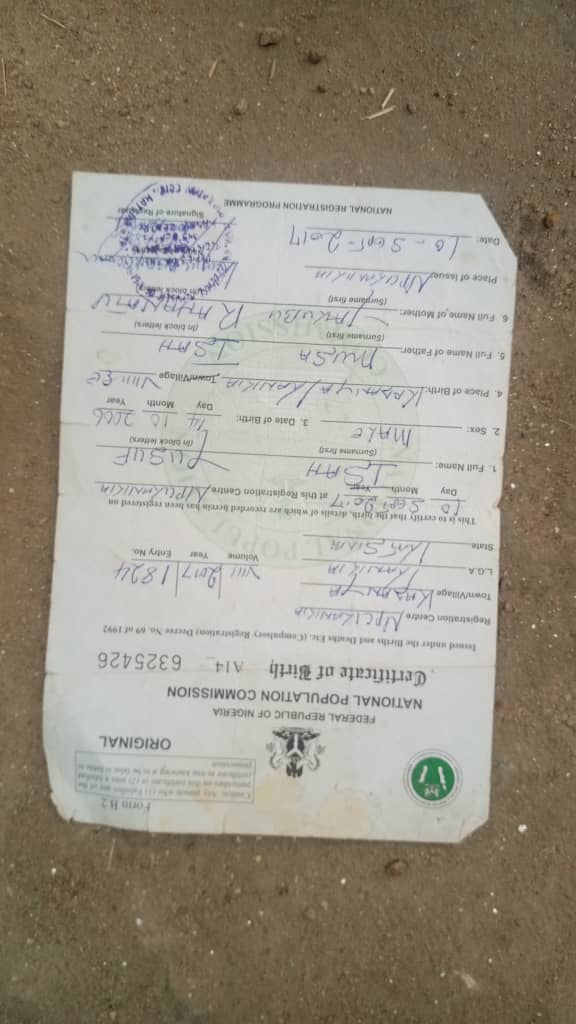 Form B 2
Caution: Any person who (1) Falsifies any of the
particulars on this certificate or (2) uses a falsified
certificate as true knowing it to be false is liable to
prosecution
ORIGINAL
FEDERAL REPUBLIC OF NIGERIA
NATIONAL POPULATION COMMISSION
Certificate of Birth A14 6325426
Issued under the Births and Deaths Etc. (Compulsory Registration) Decree No. 69 of 1992
Registration Centre
Town/Village
L.G.A VIII 2017 1824
State Volume Year Entry No.
This is to certify that the birth, details of which are recorded herein has been registered on
10 Sept 2017 at this Registration Centre
Day Month Year
1. Full Name: ISAH YUSUF
(Surname first) (in block letters)
2. Sex: MALE 3. Date of Birth: 14 10 2006
Day Month Year
4. Place of Birth: Town/Village
5. Full Name of Father: MUSA ISAH
(Surname first) (in block letters)
6. Full Name of Mother: YAKUBU RAHANATU
(Surname first) (in block letters)
Place of Issue:
Date: 10 - Sept - 2017 Signature of Registrar
NATIONAL REGISTRATION PROGRAMME